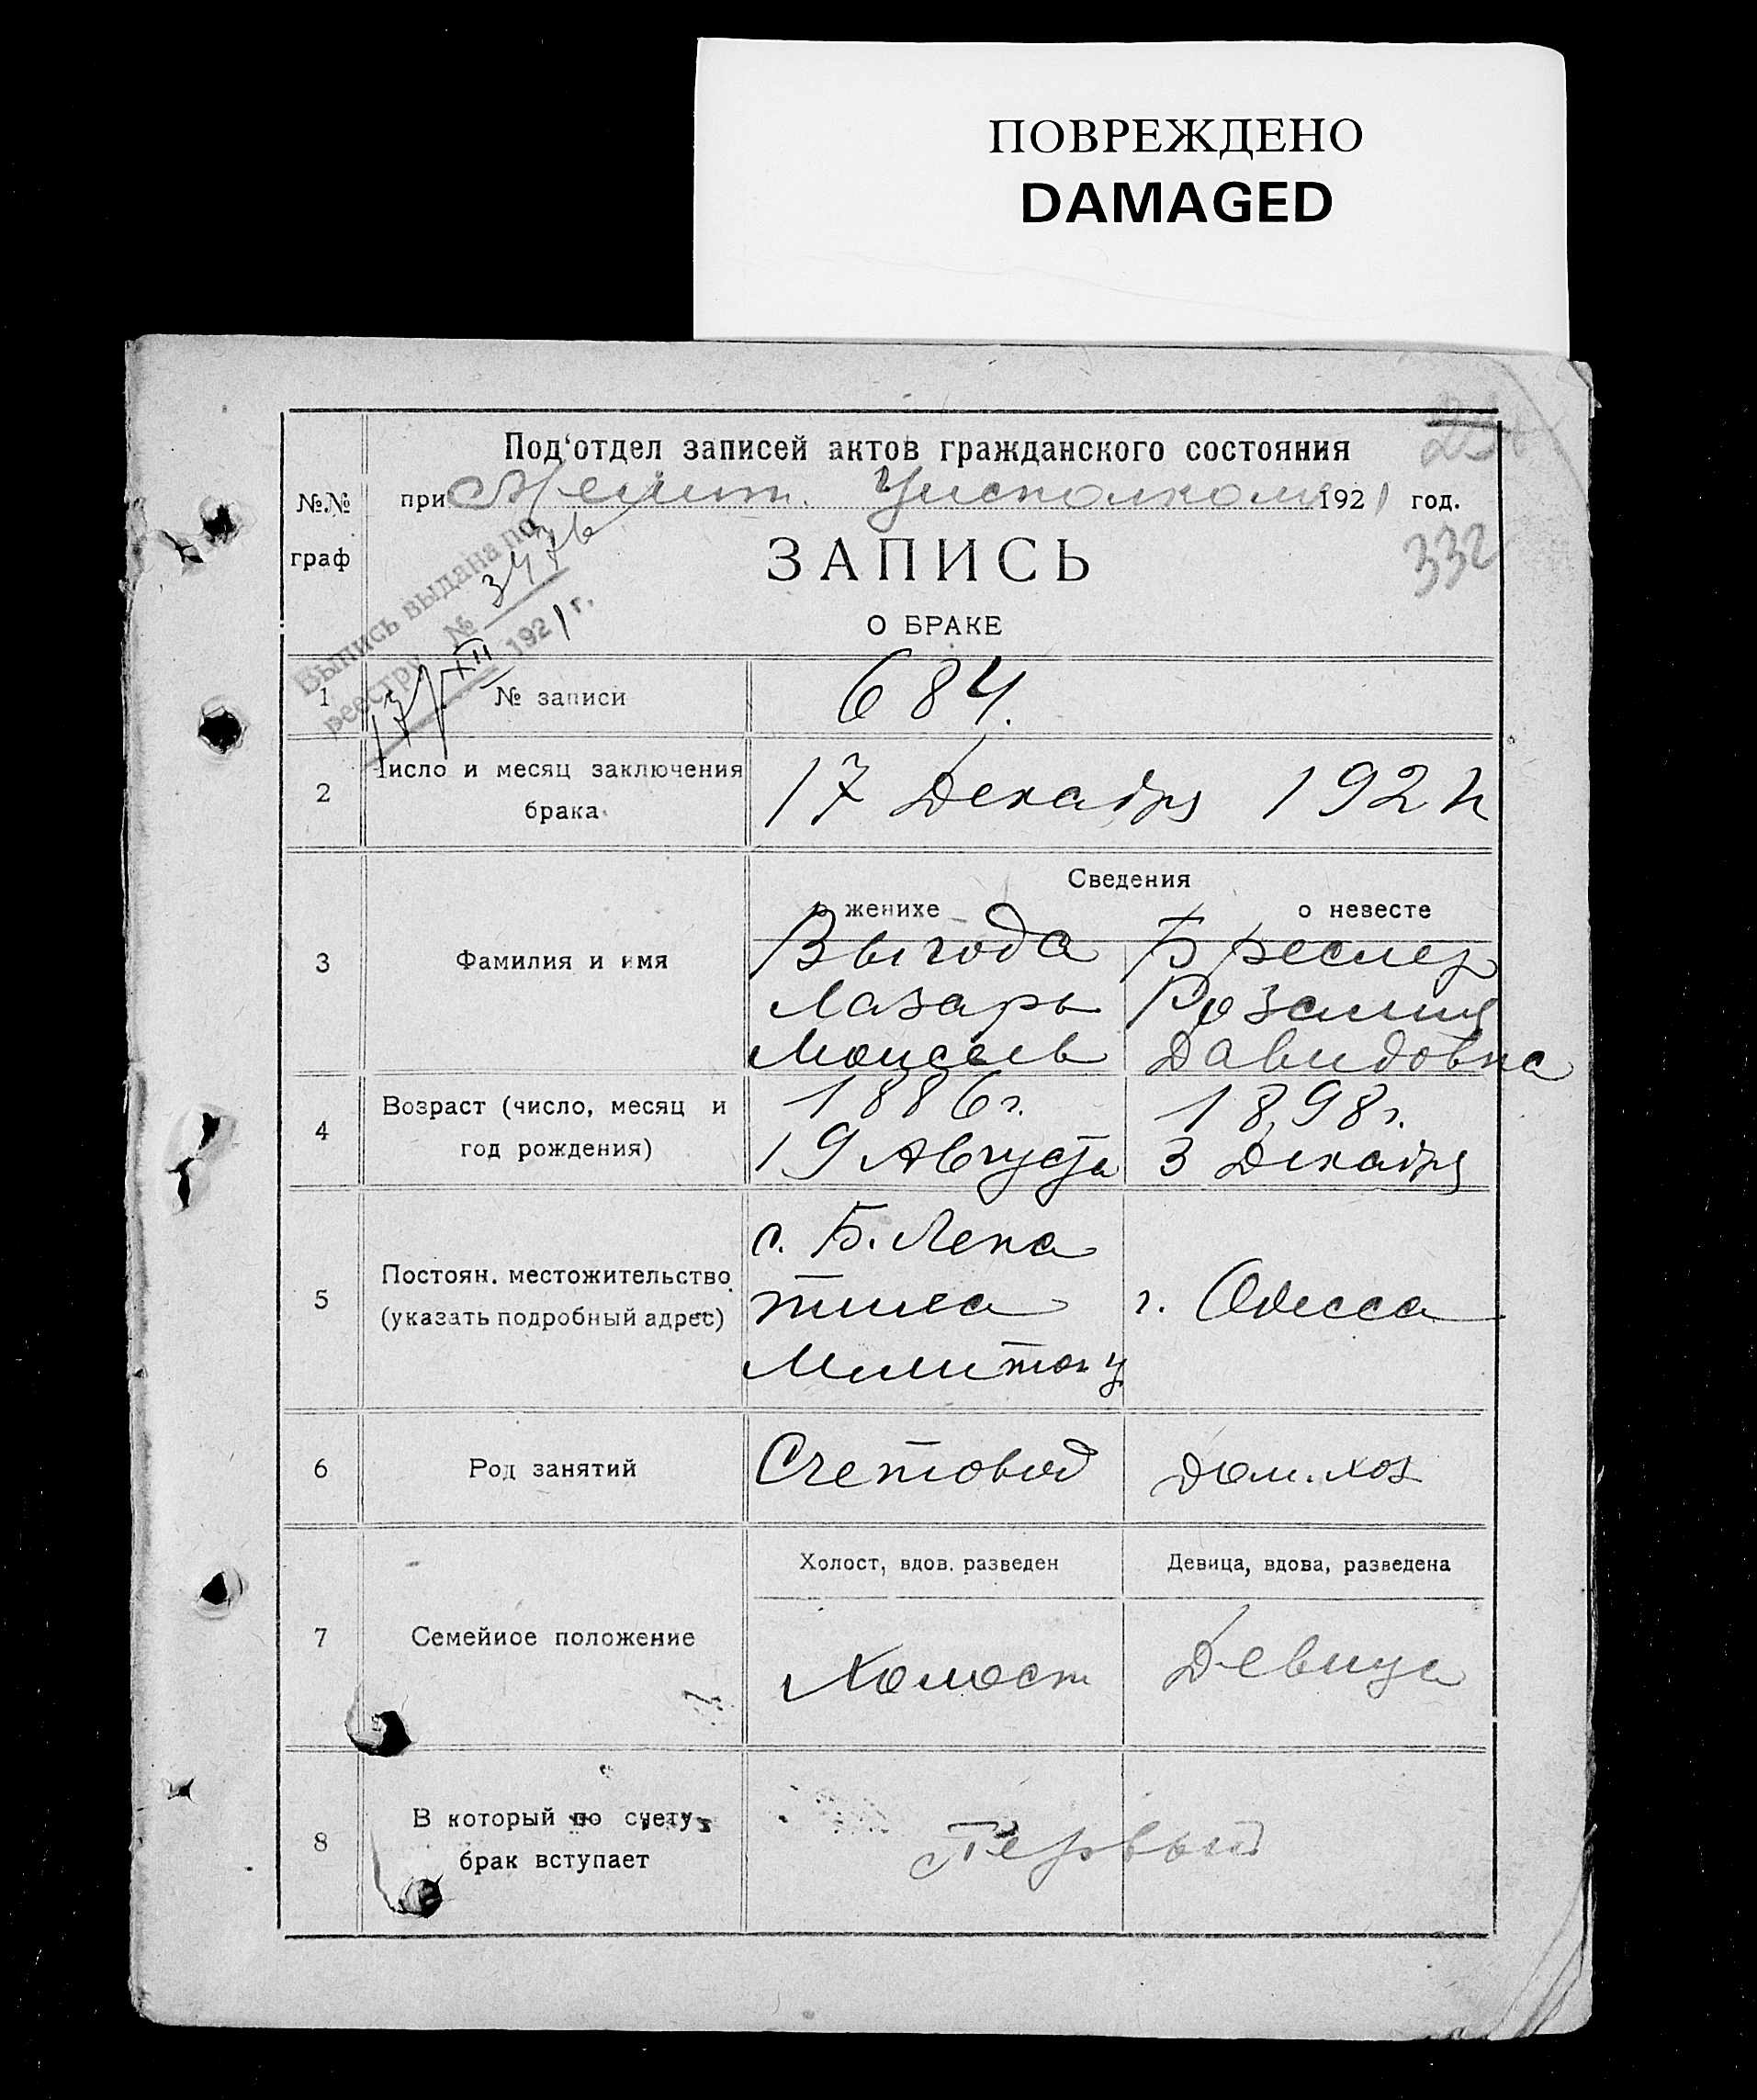 ПОВРЕЖДЕНО
DAMAGED
Под‘отдел записей актов гражданского состояния
при Мелит. Уисполкоме 1921 год.
332
№№
граф
ЗАПИСЬ
О БРАКЕ
Выпись выдана по
реестру № 3476
17/XII 1921 г.
1 № записи 684.
2 Число и месяц заключения
брака
17 Декабря 1921 г
Сведения
о женихе о невесте
3 Фамилия и имя
Выгода Бреслер
Лазарь Розалия
Моисеев Давидовна
4 Возраст (число, месяц и
год рождения)
1886 г. 1898 г.
19 Августа 3 Декабря
5 Постоян. местожительство
(указать подробный адрес)
с. Б. Лепа
тиха г. Одесса
Мелитоп у
6 Род занятий Счетовод дом. хоз
7 Семейное положение
Холост, вдов. разведен Девица, вдова, разведена
Холост Девица
8 В который по счету
брак вступает
Первый